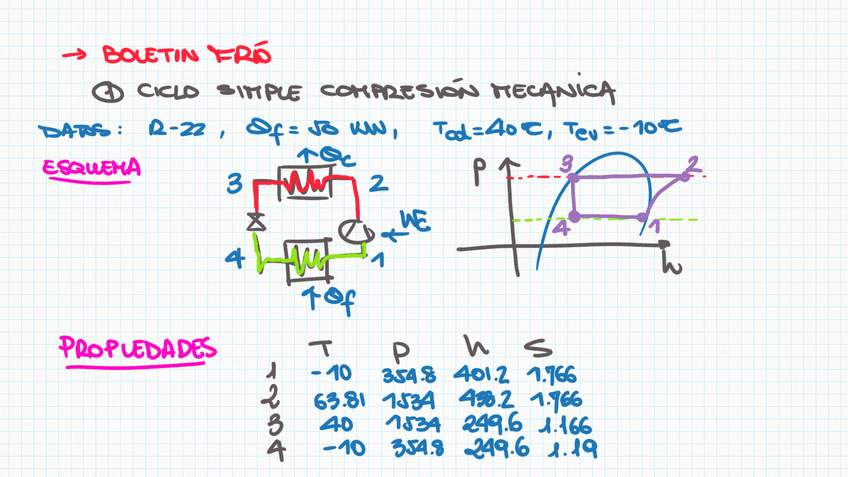 → BOLETIN FRÍO
① CICLO SIMPLE COMPRESIÓN MECANICA
DATOS: R-22, Qf = 50 KW, Tcd = 40ºC, Tev = -10ºC
ESQUEMA
↑Qc
3 2
WC
4 1
↑Qf
P
3 2
4 1
h
PROPIEDADES
T P h S
1 -10 354.8 401.2 1.766
2 63.81 1534 438.2 1.766
3 40 1534 249.6 1.166
4 -10 354.8 249.6 1.19